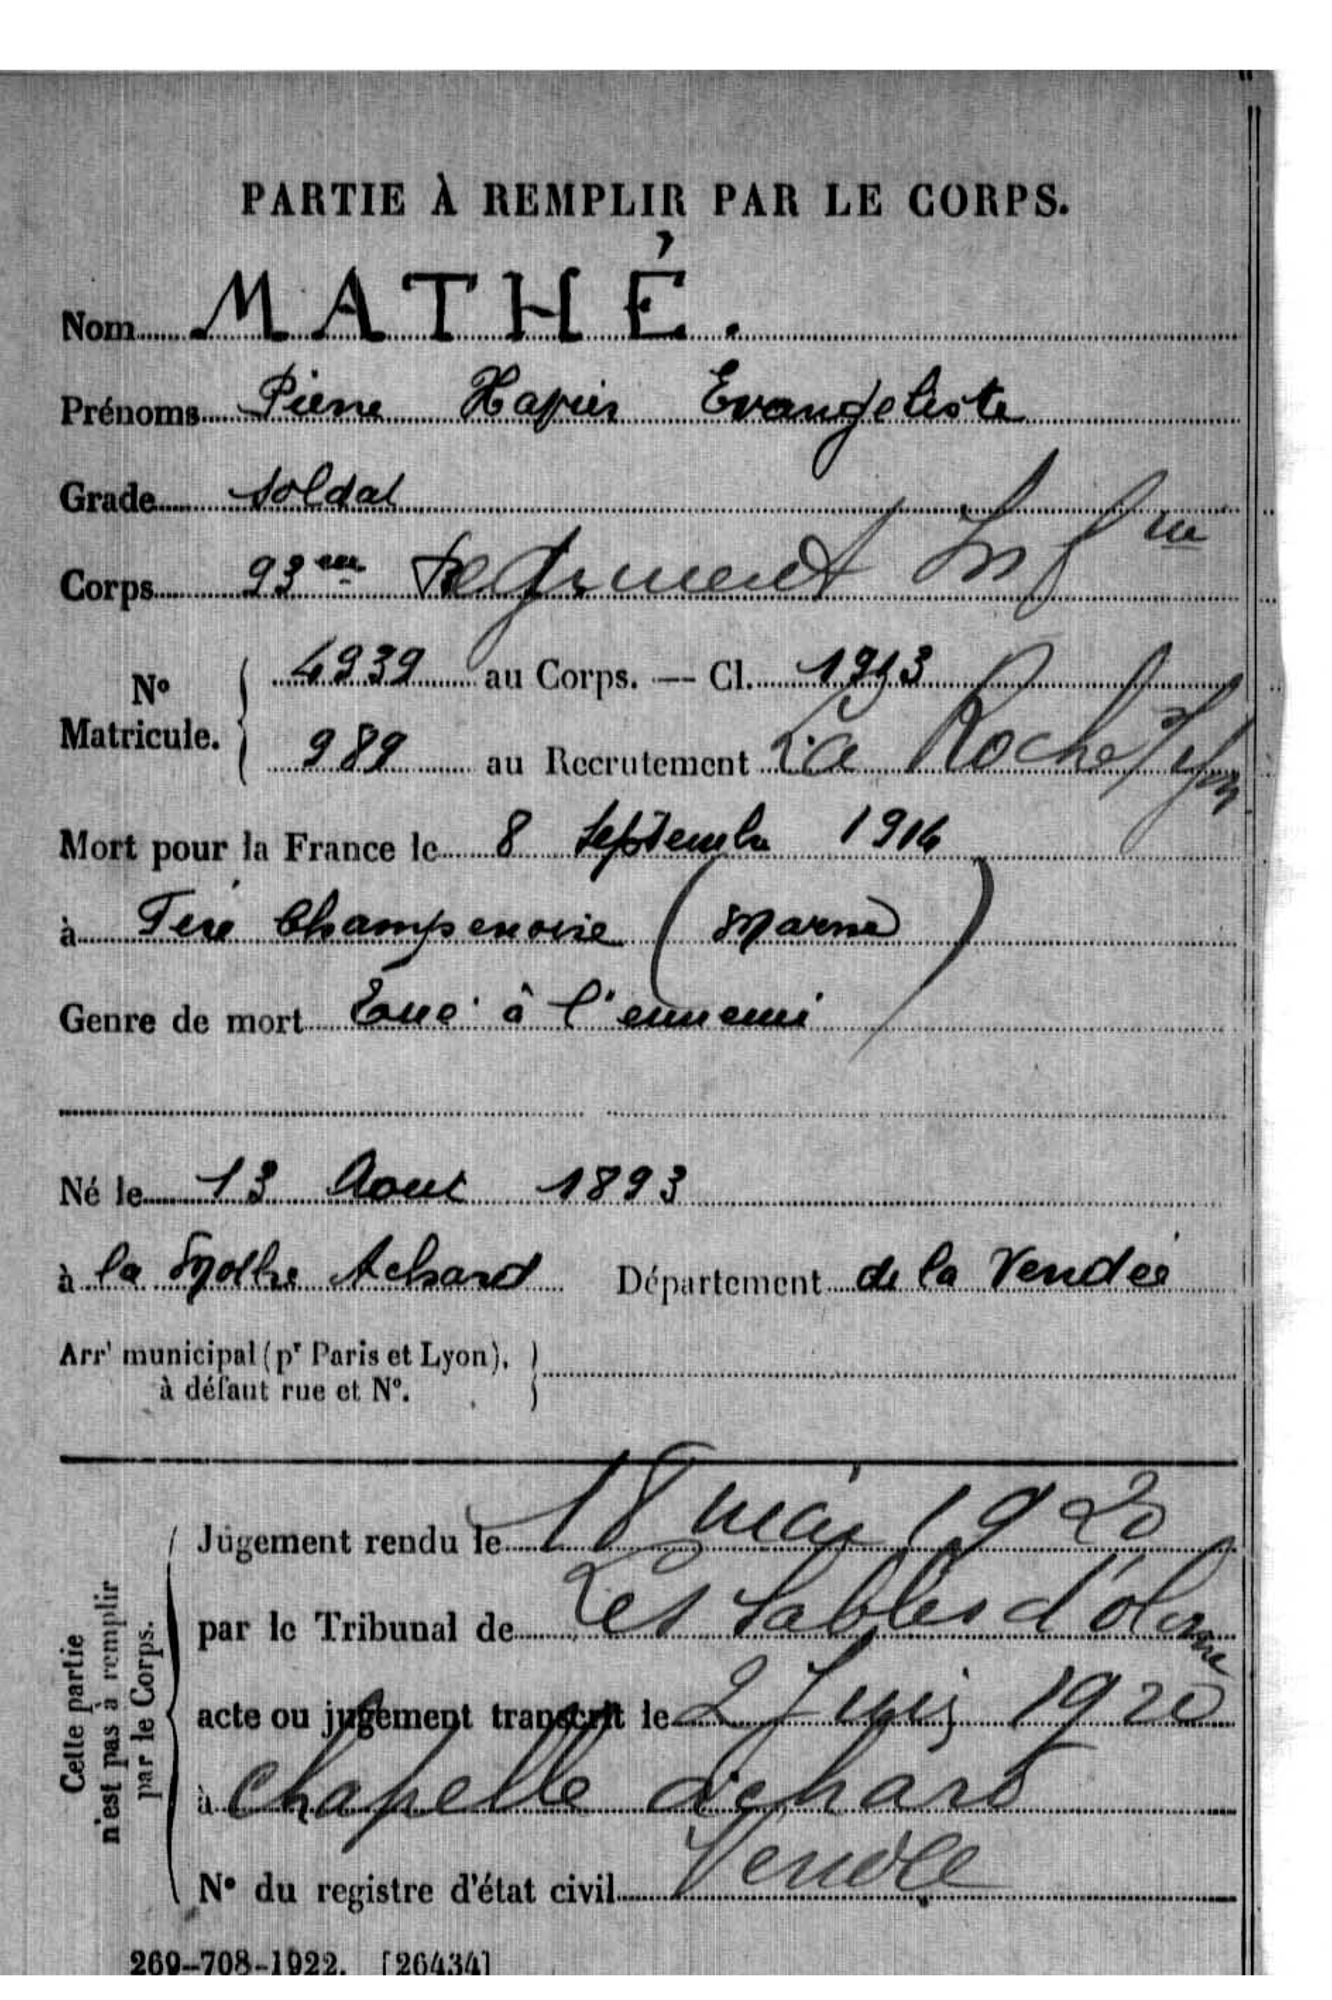 PARTIE À REMPLIR PAR LE CORPS.
Nom MATHÉ.
Prénoms Pierre Xavier Evangeliste
Grade soldat
Corps 93me Regiment Infrie
No Matricule. 4939 au Corps. — Cl. 1913
989 au Recrutement La Roche s/ Yon
Mort pour la France le 8 Septembre 1914
à Fère Champenoise (Marne)
Genre de mort Tué à l'ennemi
Né le 13 Aout 1893
à la Mothe Achard Département de la Vendée
Arrt municipal (pr Paris et Lyon),
à défaut rue et N°.
Cette partie
n'est pas à remplir
par le Corps.
Jugement rendu le 18 mai 1920
par le Tribunal de Les Sables d'olonne
acte ou jugement transcrit le 2 Juin 1920
à Chapelle achard
Vendée
N° du registre d'état civil
269-708-1922. [26434]